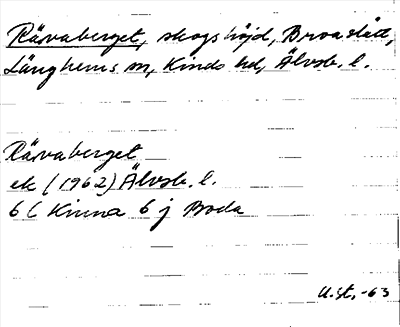 Rävaberget, skogshöjd, Broastad,
Länghems sn, Kinds hd, Älvsb. l.
Rävaberget
ek (1962) Älvsb. l.
6 C Kinna 6 j Boda
U.st, -63